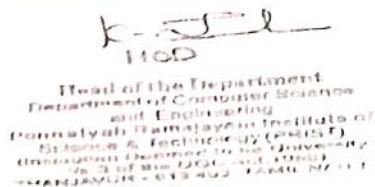 HOD
Head of the Department
Department of Computer Science
and Engineering
Ponnaiyah Ramajayam Institute of
Science & Technology (PRIST)
(Institution Deemed to be University
u/s 3 of the UGC Act, 1956)
THANJAVUR - 613 403 TAMIL